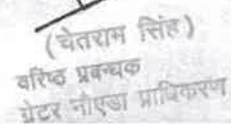 (चेतराम सिंह)
वरिष्ठ प्रबन्धक
ग्रेटर नौएडा प्राधिकरण